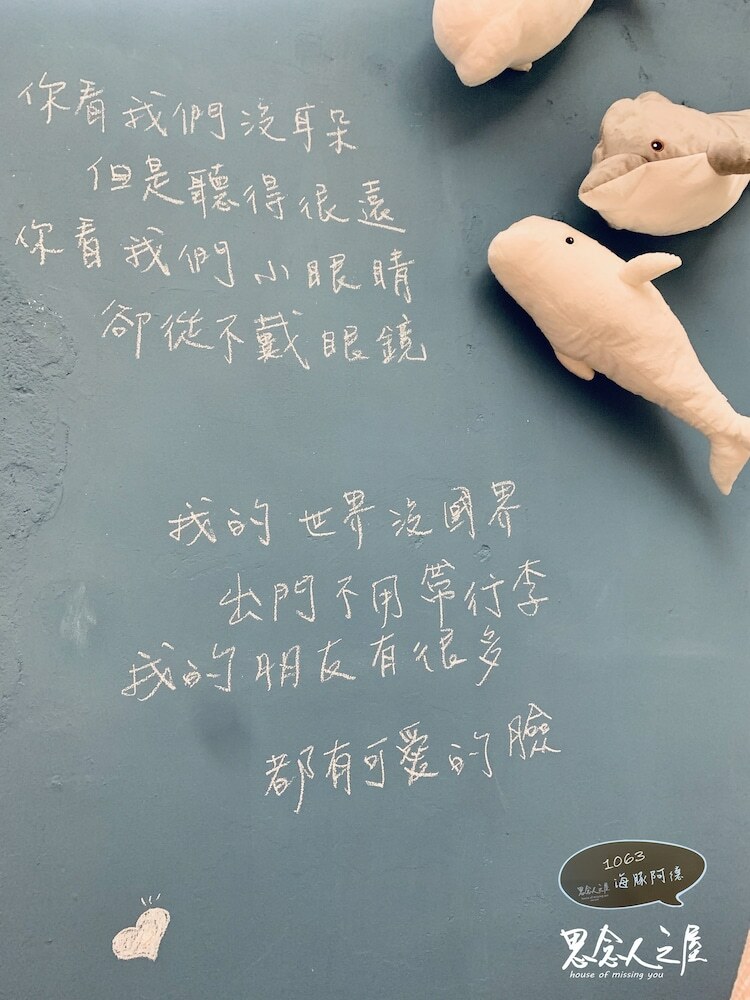 你看我們沒耳朵
但是聽得很遠
你看我們小眼睛
卻從不戴眼鏡
我的世界沒國界
出門不用帶行李
我的朋友有很多
都有可愛的臉
1063
思念人之屋 海豚阿德
思念人之屋
house of missing you